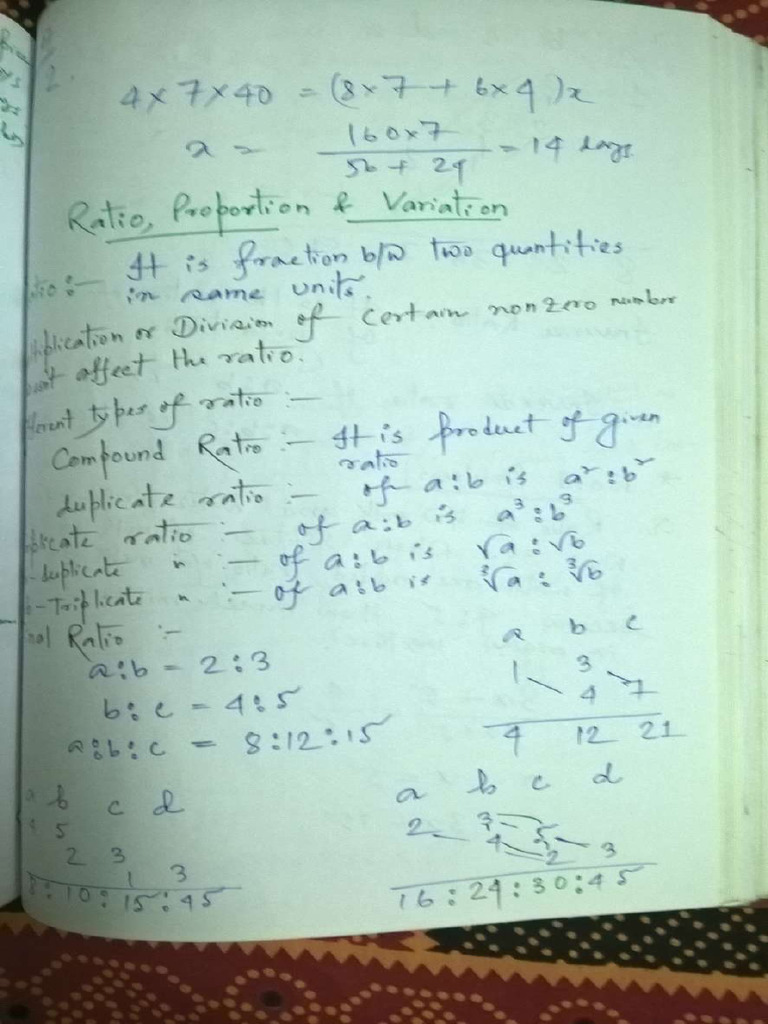 4 x 7 x 40 = (8 x 7 + 6 x 4 )x
x = 160 x 7 / 56 + 24 = 14 days
Ratio, Proportion & Variation
tio :- It is fraction b/w two quantities
in same units.
iplication or Division of certain non zero number
affect the ratio.
types of ratio :-
Compound Ratio :- It is product of given
ratio
duplicate ratio :- of a:b is a²:b²
licate ratio :- of a:b is a³:b³
-duplicate " :- of a:b is √a : √b
-Triplicate " :- of a:b is ∛a : ∛b
nal Ratio :-
a:b = 2:3
b:c = 4:5
a:b:c = 8:12:15
a b c
1 3
4 7
4 12 21
a b c d
5
2 3
1 3
8:10:15:45
a b c d
2 3
4 5
2 3
16:24:30:45